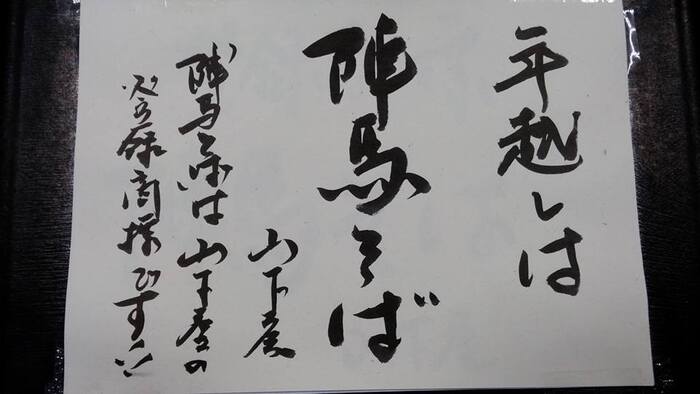 年越しは
陣馬そば
山下屋
陣馬そばは山下屋の
登録商標です